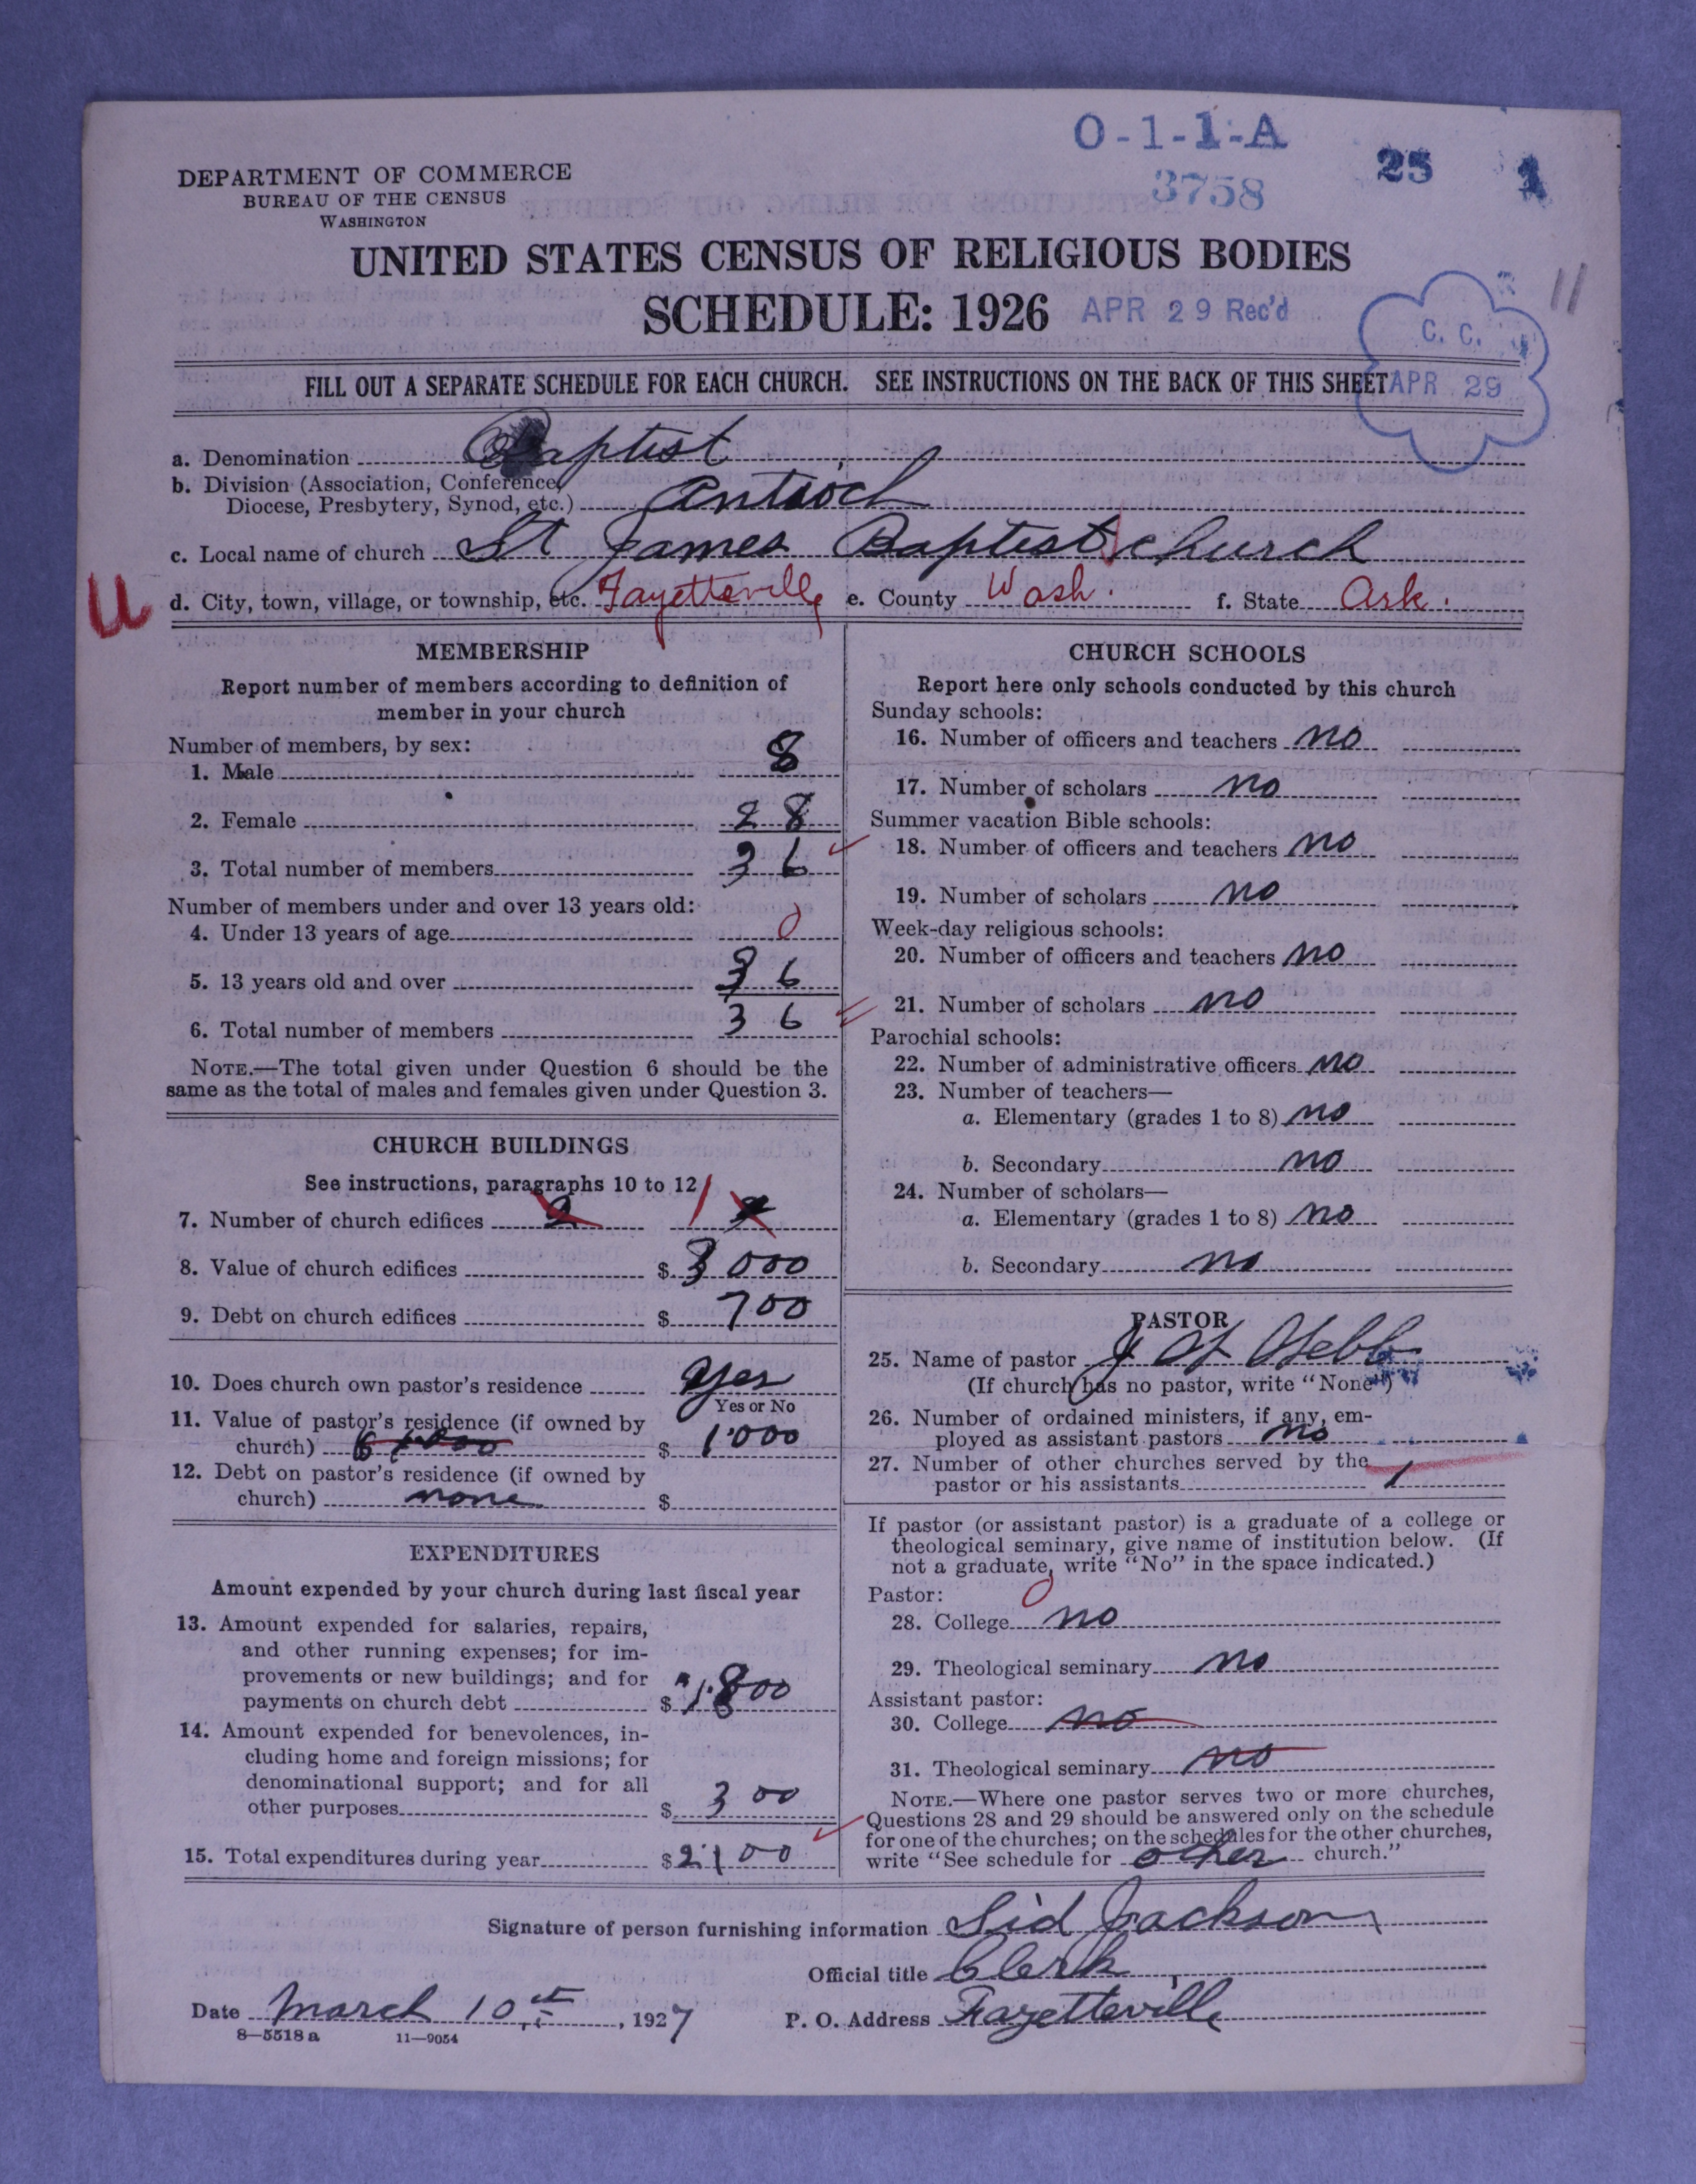 O-1-1-A
25 1
3758
DEPARTMENT OF COMMERCE
BUREAU OF THE CENSUS
WASHINGTON
UNITED STATES CENSUS OF RELIGIOUS BODIES
SCHEDULE: 1926 APR 29 Rec'd
11
C. C.
APR 29
FILL OUT A SEPARATE SCHEDULE FOR EACH CHURCH. SEE INSTRUCTIONS ON THE BACK OF THIS SHEET
a. Denomination Baptist
b. Division (Association, Conference,
Diocese, Presbytery, Synod, etc.) Antioch
c. Local name of church St James Baptist church
U
d. City, town, village, or township, etc. Fayetteville e. County Wash. f. State Ark.
MEMBERSHIP
Report number of members according to definition of
member in your church
Number of members, by sex:
1. Male 8
2. Female 28
3. Total number of members 36
Number of members under and over 13 years old:
4. Under 13 years of age 0
5. 13 years old and over 36
6. Total number of members 36
NOTE.—The total given under Question 6 should be the
same as the total of males and females given under Question 3.
CHURCH BUILDINGS
See instructions, paragraphs 10 to 12
7. Number of church edifices 2 1 2
8. Value of church edifices $ 3000
9. Debt on church edifices $ 700
10. Does church own pastor's residence yes
Yes or No
11. Value of pastor's residence (if owned by
church) $ 1000
12. Debt on pastor's residence (if owned by
church) none $
EXPENDITURES
Amount expended by your church during last fiscal year
13. Amount expended for salaries, repairs,
and other running expenses; for im-
provements or new buildings; and for
payments on church debt $ 1.800
14. Amount expended for benevolences, in-
cluding home and foreign missions; for
denominational support; and for all
other purposes $ 300
15. Total expenditures during year $ 2100
CHURCH SCHOOLS
Report here only schools conducted by this church
Sunday schools:
16. Number of officers and teachers no
17. Number of scholars no
Summer vacation Bible schools:
18. Number of officers and teachers no
19. Number of scholars no
Week-day religious schools:
20. Number of officers and teachers no
21. Number of scholars no
Parochial schools:
22. Number of administrative officers no
23. Number of teachers—
a. Elementary (grades 1 to 8) no
b. Secondary no
24. Number of scholars—
a. Elementary (grades 1 to 8) no
b. Secondary no
PASTOR
25. Name of pastor J
(If church has no pastor, write "None")
26. Number of ordained ministers, if any, em-
ployed as assistant pastors no
27. Number of other churches served by the
pastor or his assistants 1
If pastor (or assistant pastor) is a graduate of a college or
theological seminary, give name of institution below. (If
not a graduate, write "No" in the space indicated.)
Pastor: 0
28. College no
29. Theological seminary no
Assistant pastor:
30. College no
31. Theological seminary no
NOTE.—Where one pastor serves two or more churches,
Questions 28 and 29 should be answered only on the schedule
for one of the churches; on the schedules for the other churches,
write "See schedule for other church."
Signature of person furnishing information Sid Jackson
Official title Clerk
Date March 10th, 1927 P. O. Address Fayetteville
8—5518 a 11—9054